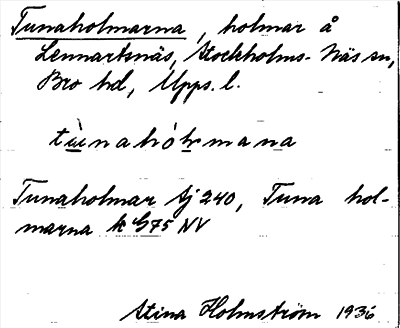 Tunaholmarna, holmar å
Lennartsnäs, Stockholms-Näs sn,
Bro hd, Upps. l.
tùnahólmana
Tunaholmar Aj 240, Tuna hol-
marna k G75 NV
Stina Holmström 1936